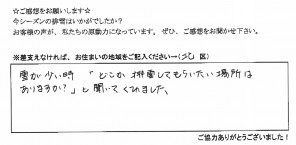 ☆ご感想をお願いします☆
今シーズンの排雪はいかがでしたか？
お客様の声が、私たちの原動力になっています。ぜひ、ご感想をお聞かせ下さい。
※差支えなければ、お住まいの地域をご記入ください→（北 区）
雪が少い時 「どこか排雪してもらいたい場所は
ありますか？」と聞いてくれました。
ご協力ありがとうございました！